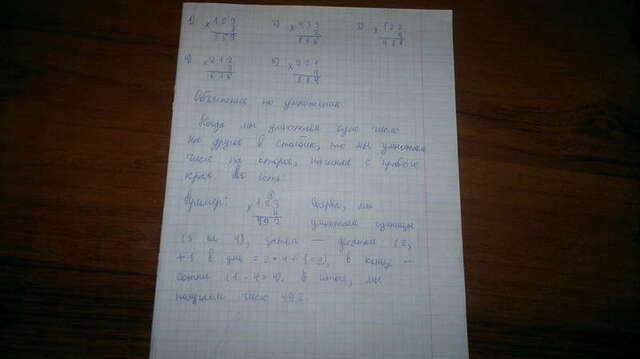 1) × 123 2) × 433 3) × 122
3 2 4
369 866 488
4) × 212 5) × 221
3 4
636 884
Объяснение по умножению
Когда мы умножаем одно число
на другое в столбик, то мы умножаем
число на второе, начиная с правого
края. То есть:
Пример: × 123 мы
4 умножаем единицы
492
(3 на 4), затем — десятки (2,
+1 в уме = 2 · 4 + 1 = 9), в конце —
сотни (1 · 4 = 4). В итоге, мы
получаем число 492.